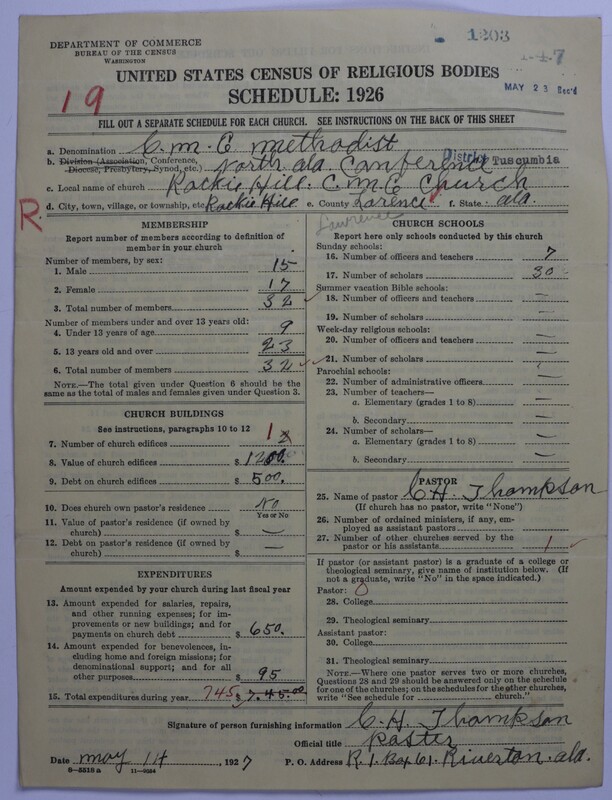 1203
1-4-7
DEPARTMENT OF COMMERCE
BUREAU OF THE CENSUS
WASHINGTON
UNITED STATES CENSUS OF RELIGIOUS BODIES
MAY 23 Rec'd
19
SCHEDULE: 1926
FILL OUT A SEPARATE SCHEDULE FOR EACH CHURCH. SEE INSTRUCTIONS ON THE BACK OF THIS SHEET
a. Denomination C. M. E. Methodist
b. Division (Association, Conference, Diocese, Presbytery, Synod, etc.) North Ala Conference District Tuscumbia
c. Local name of church Rockie Hill. C. M. E Church
R
d. City, town, village, or township, etc. Rockie Hill e. County Larence f. State Ala.
Lawrence
MEMBERSHIP
Report number of members according to definition of
member in your church
Number of members, by sex:
1. Male 15
2. Female 17
3. Total number of members 32
Number of members under and over 13 years old:
4. Under 13 years of age 9
5. 13 years old and over 23
6. Total number of members 32
NOTE.—The total given under Question 6 should be
same as the total of males and females given under Question 3.
CHURCH BUILDINGS
See instructions, paragraphs 10 to 12
7. Number of church edifices 1 2
8. Value of church edifices $ 1200.
9. Debt on church edifices $ 500.
10. Does church own pastor's residence No
Yes or No
11. Value of pastor's residence (if owned by
church) $ —
12. Debt on pastor's residence (if owned by
church) $ —
EXPENDITURES
Amount expended by your church during last fiscal year
13. Amount expended for salaries, repairs,
and other running expenses; for im-
provements or new buildings; and for
payments on church debt $ 650.
14. Amount expended for benevolences, in-
cluding home and foreign missions; for
denominational support; and for all
other purposes $ 95
15. Total expenditures during year 745 $ 7.45.00
CHURCH SCHOOLS
Report here only schools conducted by this church
Sunday schools:
16. Number of officers and teachers 7
17. Number of scholars 30
Summer vacation Bible schools:
18. Number of officers and teachers —
19. Number of scholars —
Week-day religious schools:
20. Number of officers and teachers —
21. Number of scholars —
Parochial schools:
22. Number of administrative officers —
23. Number of teachers—
a. Elementary (grades 1 to 8) —
b. Secondary —
24. Number of scholars—
a. Elementary (grades 1 to 8) —
b. Secondary —
PASTOR
25. Name of pastor C. H. Thompson
(If church has no pastor, write "None")
26. Number of ordained ministers, if any, em-
ployed as assistant pastors
27. Number of other churches served by the
pastor or his assistants 1
If pastor (or assistant pastor) is a graduate of a college or
theological seminary, give name of institution below. (If
not a graduate, write "No" in the space indicated.)
Pastor: O
28. College
29. Theological seminary
Assistant pastor:
30. College
31. Theological seminary
NOTE.—Where one pastor serves two or more churches,
Questions 28 and 29 should be answered only on the schedule
for one of the churches; on the schedules for the other churches,
write "See schedule for church."
Signature of person furnishing information C. H. Thompson
Official title Paster
Date May 14, 1927 P. O. Address R. 1. Box 61. Riverton. Ala.
8—5518 a 11—9084